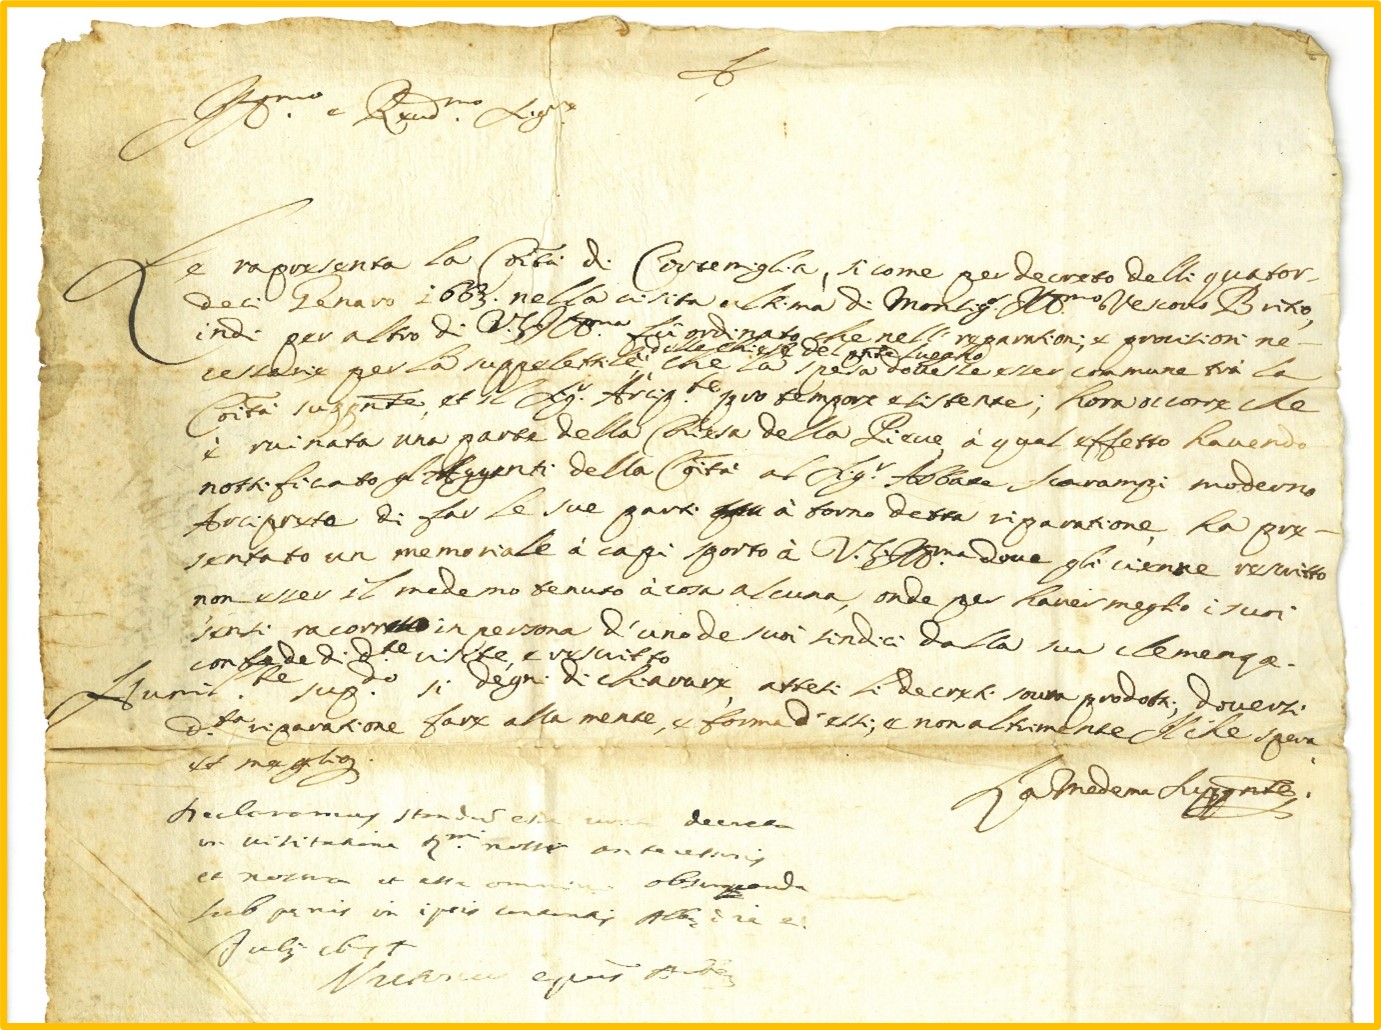 Ill.mo e R.mo Sig.r
Le rapresenta la Coità di Cortemiglia, si come per decreto delli quator-
deci Genaro 1663. nella visita ultima di Monsig.r Ill.mo Vescovo Britio,
indi per altro di V.S. Ill.ma fù ordinato che nelli reparationi, e provisioni ne-
delle chiese del pnte luogho
cessarie per la suppelettile, che la spesa dovesse esser commune trà la
Coità supp.nte, et il Sig.r Arcip.te pro tempore esistente; hora occorre che
è ruinata una parte della Chiesa della Pieve, à qual effetto havendo
nottificato gl'Agenti della Coità al Sig.r Abbate Scarampi moderno
Arciprete di far le sue parti à torno detta riparatione, ha pre-
sentato un memoriale à capi sporto à V.S. Ill.ma dove gli viene rescritto
non esser il medemo tenuto à cosa alcuna, onde per haver meglio i suoi
sensi in persona d'uno de suoi sindici dalla sua clemenza.
con fede di d.te visite, e rescritto
Humil.te sup.do si degni dichiarare, attesi li decreti soura prodotti, doversi
d.ta riparatione fare alla mente, e forma d'essi, e non altrimente Il che spera
et meglio.
La Medema Supp.nte.
Declaramus standum esse decreta
in visitatione R.mi nostri antecessoris
et nostra et esse omnino observanda
sub penis in ipsis contentis Albæ die
Julij